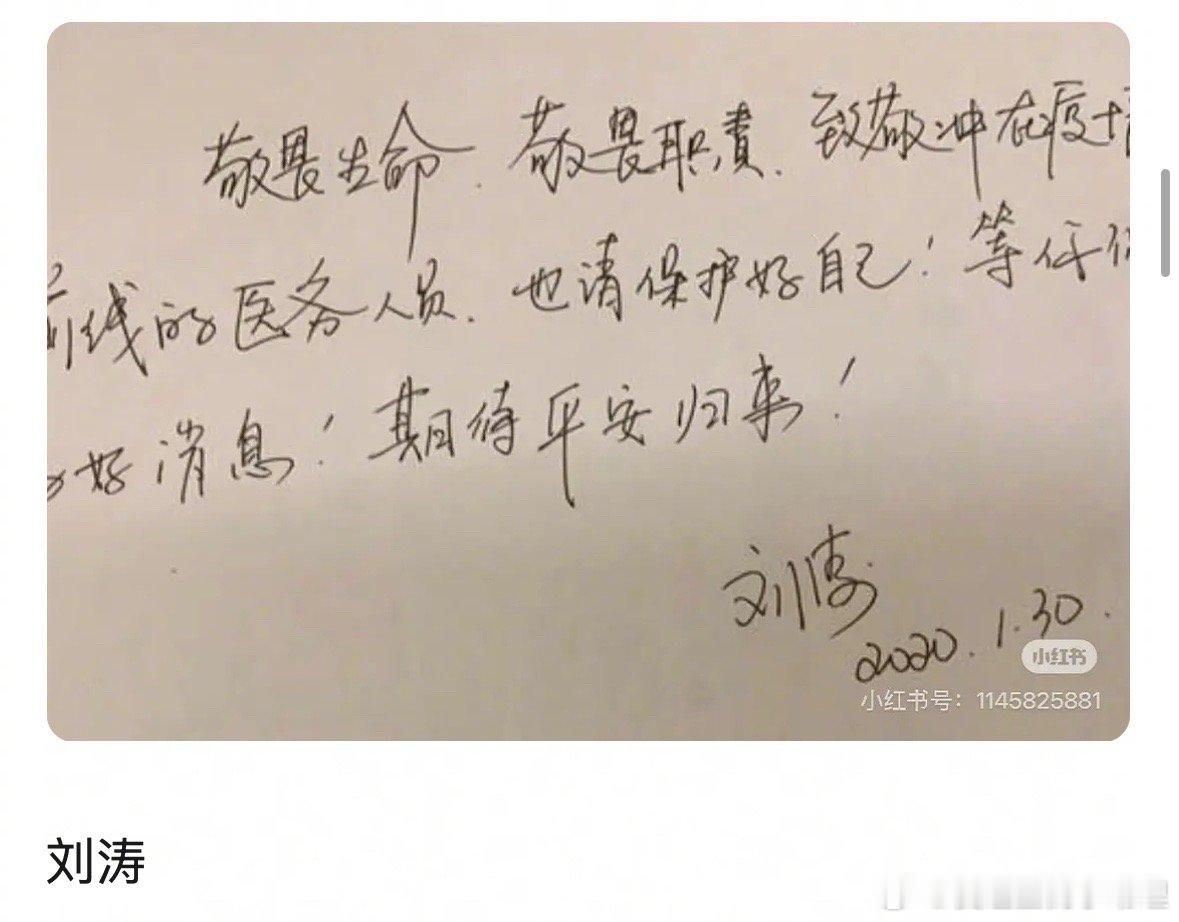 敬畏生命.敬畏职责.致敬冲在疫情
前线的医务人员.也请保护好自己!等任何
好消息!期待平安归来!
刘涛
2020.1.30.
小红书
小红书号：1145825881
刘涛